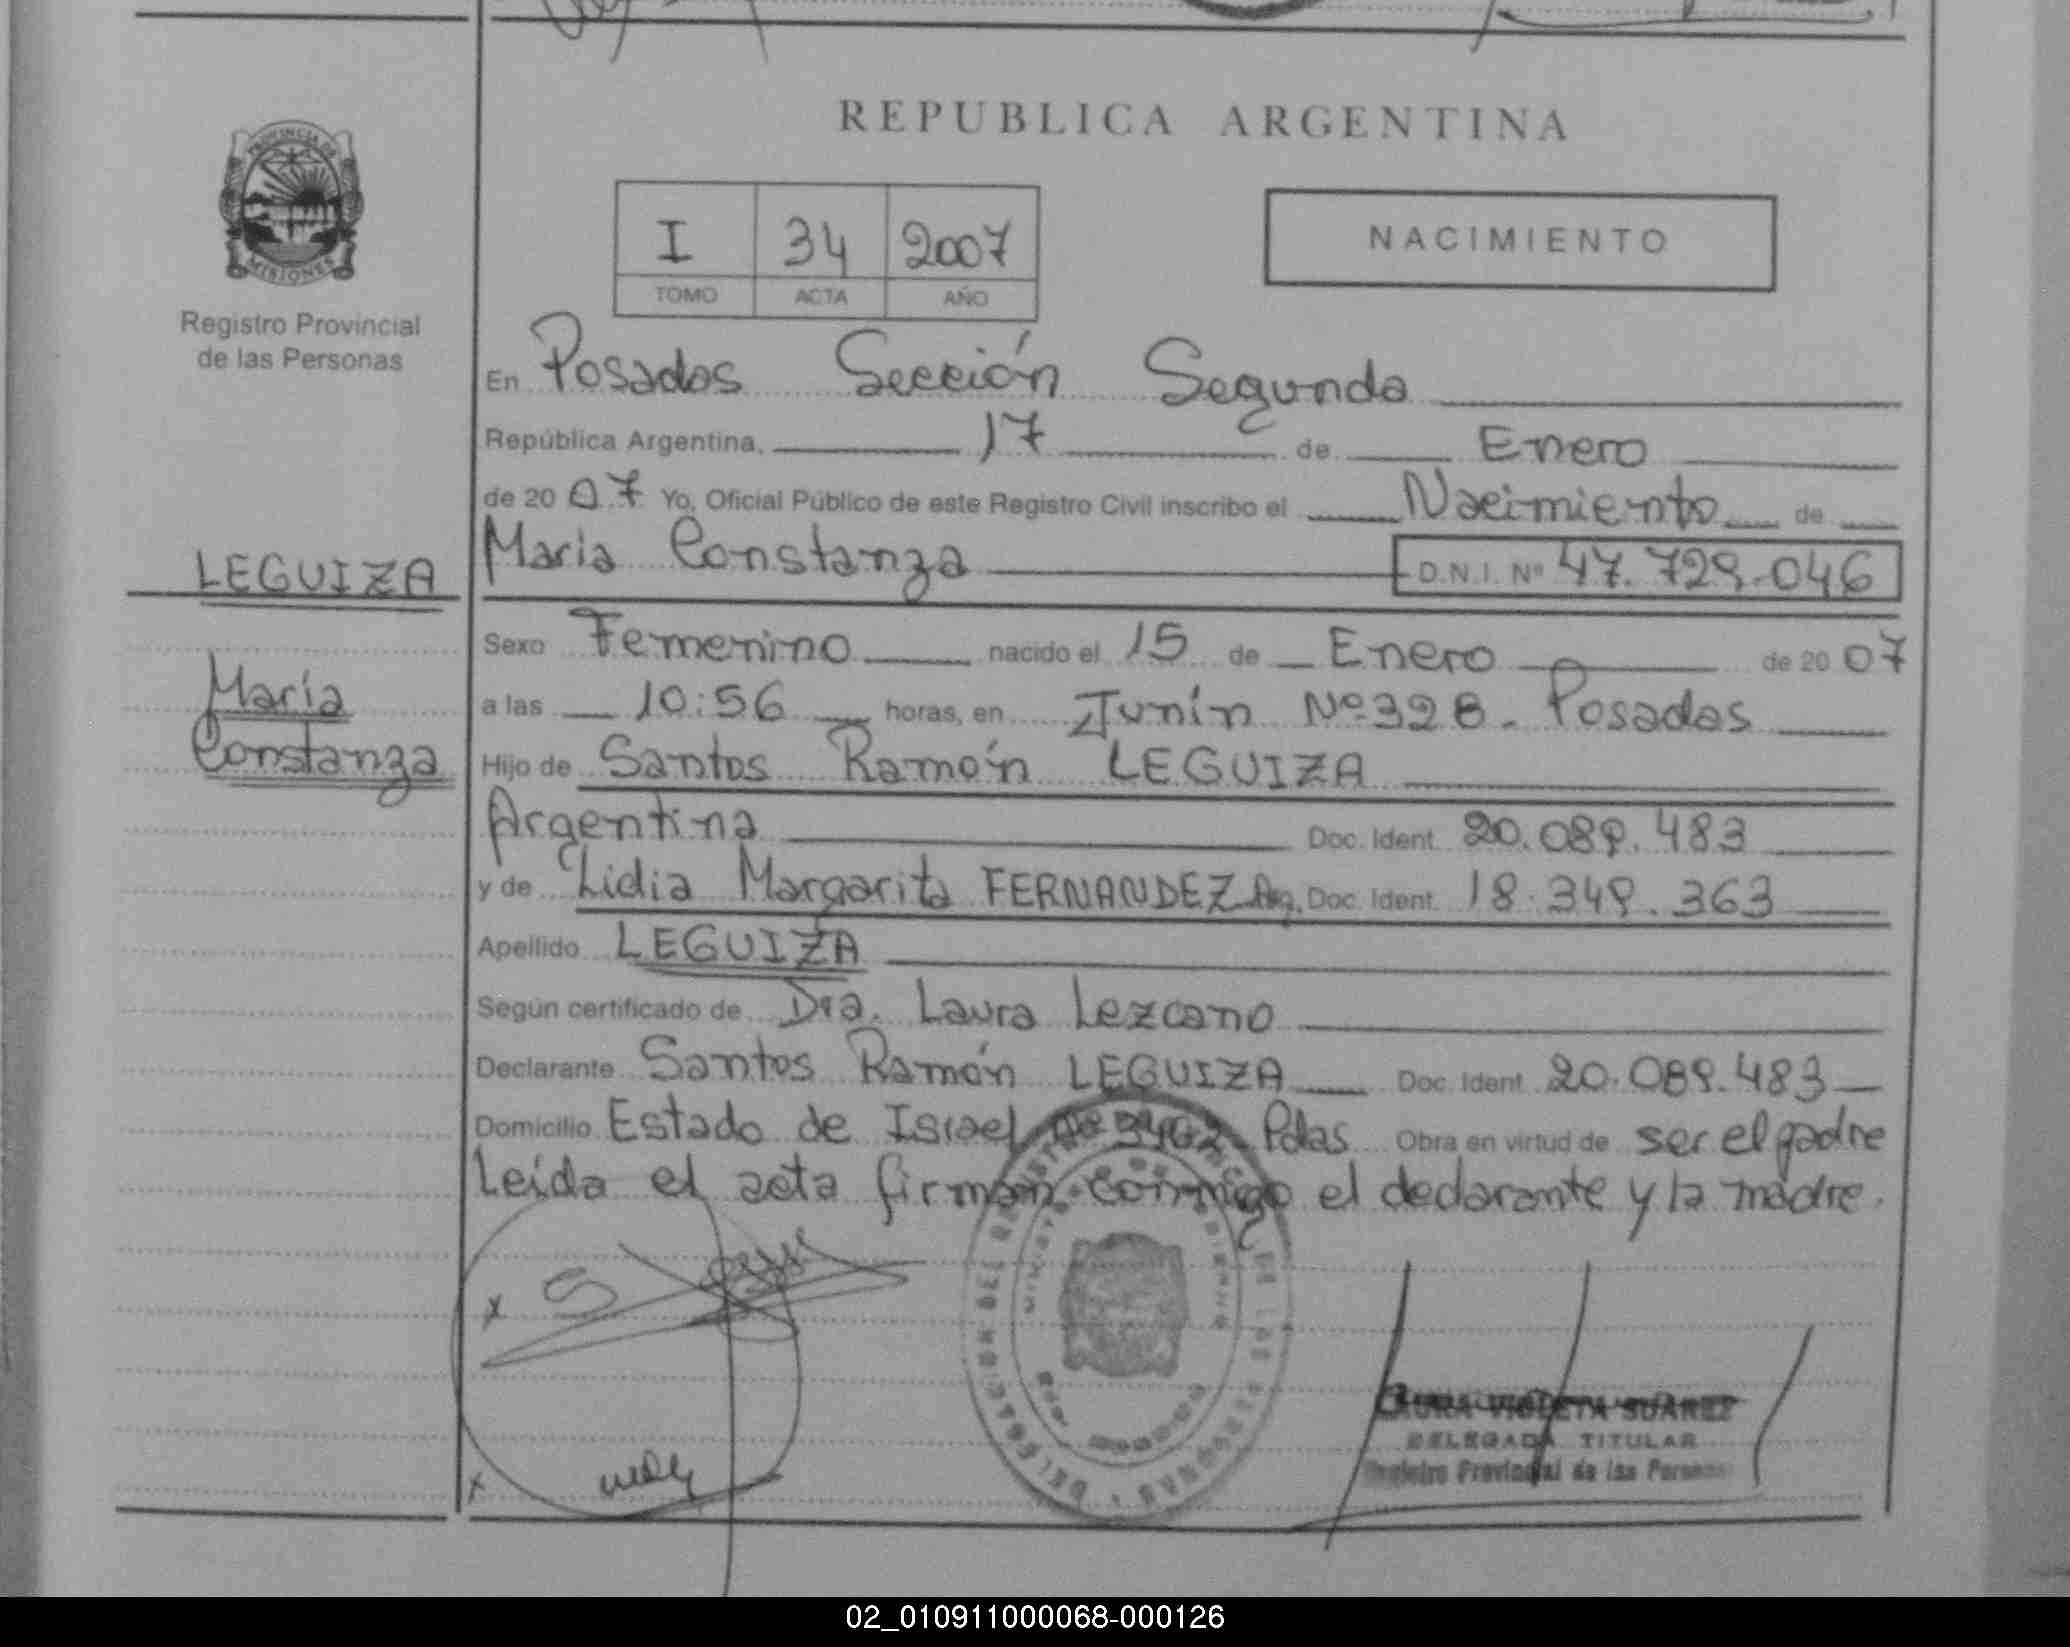 REPUBLICA ARGENTINA
PROVINCIA DE
MISIONES
Registro Provincial
de las Personas
I 34 2007
TOMO ACTA AÑO
NACIMIENTO
En Posadas Sección Segunda
República Argentina, 17 de Enero
de 20 07 Yo, Oficial Público de este Registro Civil inscribo el Nacimiento de
LEGUIZA
Maria Constanza D.N.I. Nº 47.729.046
Sexo Femenino nacido el 15 de Enero de 20 07
María
Constanza
a las 10:56 horas, en Junín Nº 328. Posadas
Hijo de Santos Ramón LEGUIZA
Argentina Doc. Ident. 20.089.483
y de Lidia Margarita FERNANDEZ Arg. Doc. Ident. 18.349.363
Apellido LEGUIZA
Según certificado de Dra. Laura Lezcano
Declarante Santos Ramón LEGUIZA Doc. Ident. 20.089.483
Domicilio Estado de Israel Nº Pdas Obra en virtud de ser el padre
Leída el acta firman conmigo el declarante y la madre.
x
x
LAURA VIOLETA SUAREZ
DELEGADA TITULAR
Registro Provincial de las Personas
02_010911000068-000126